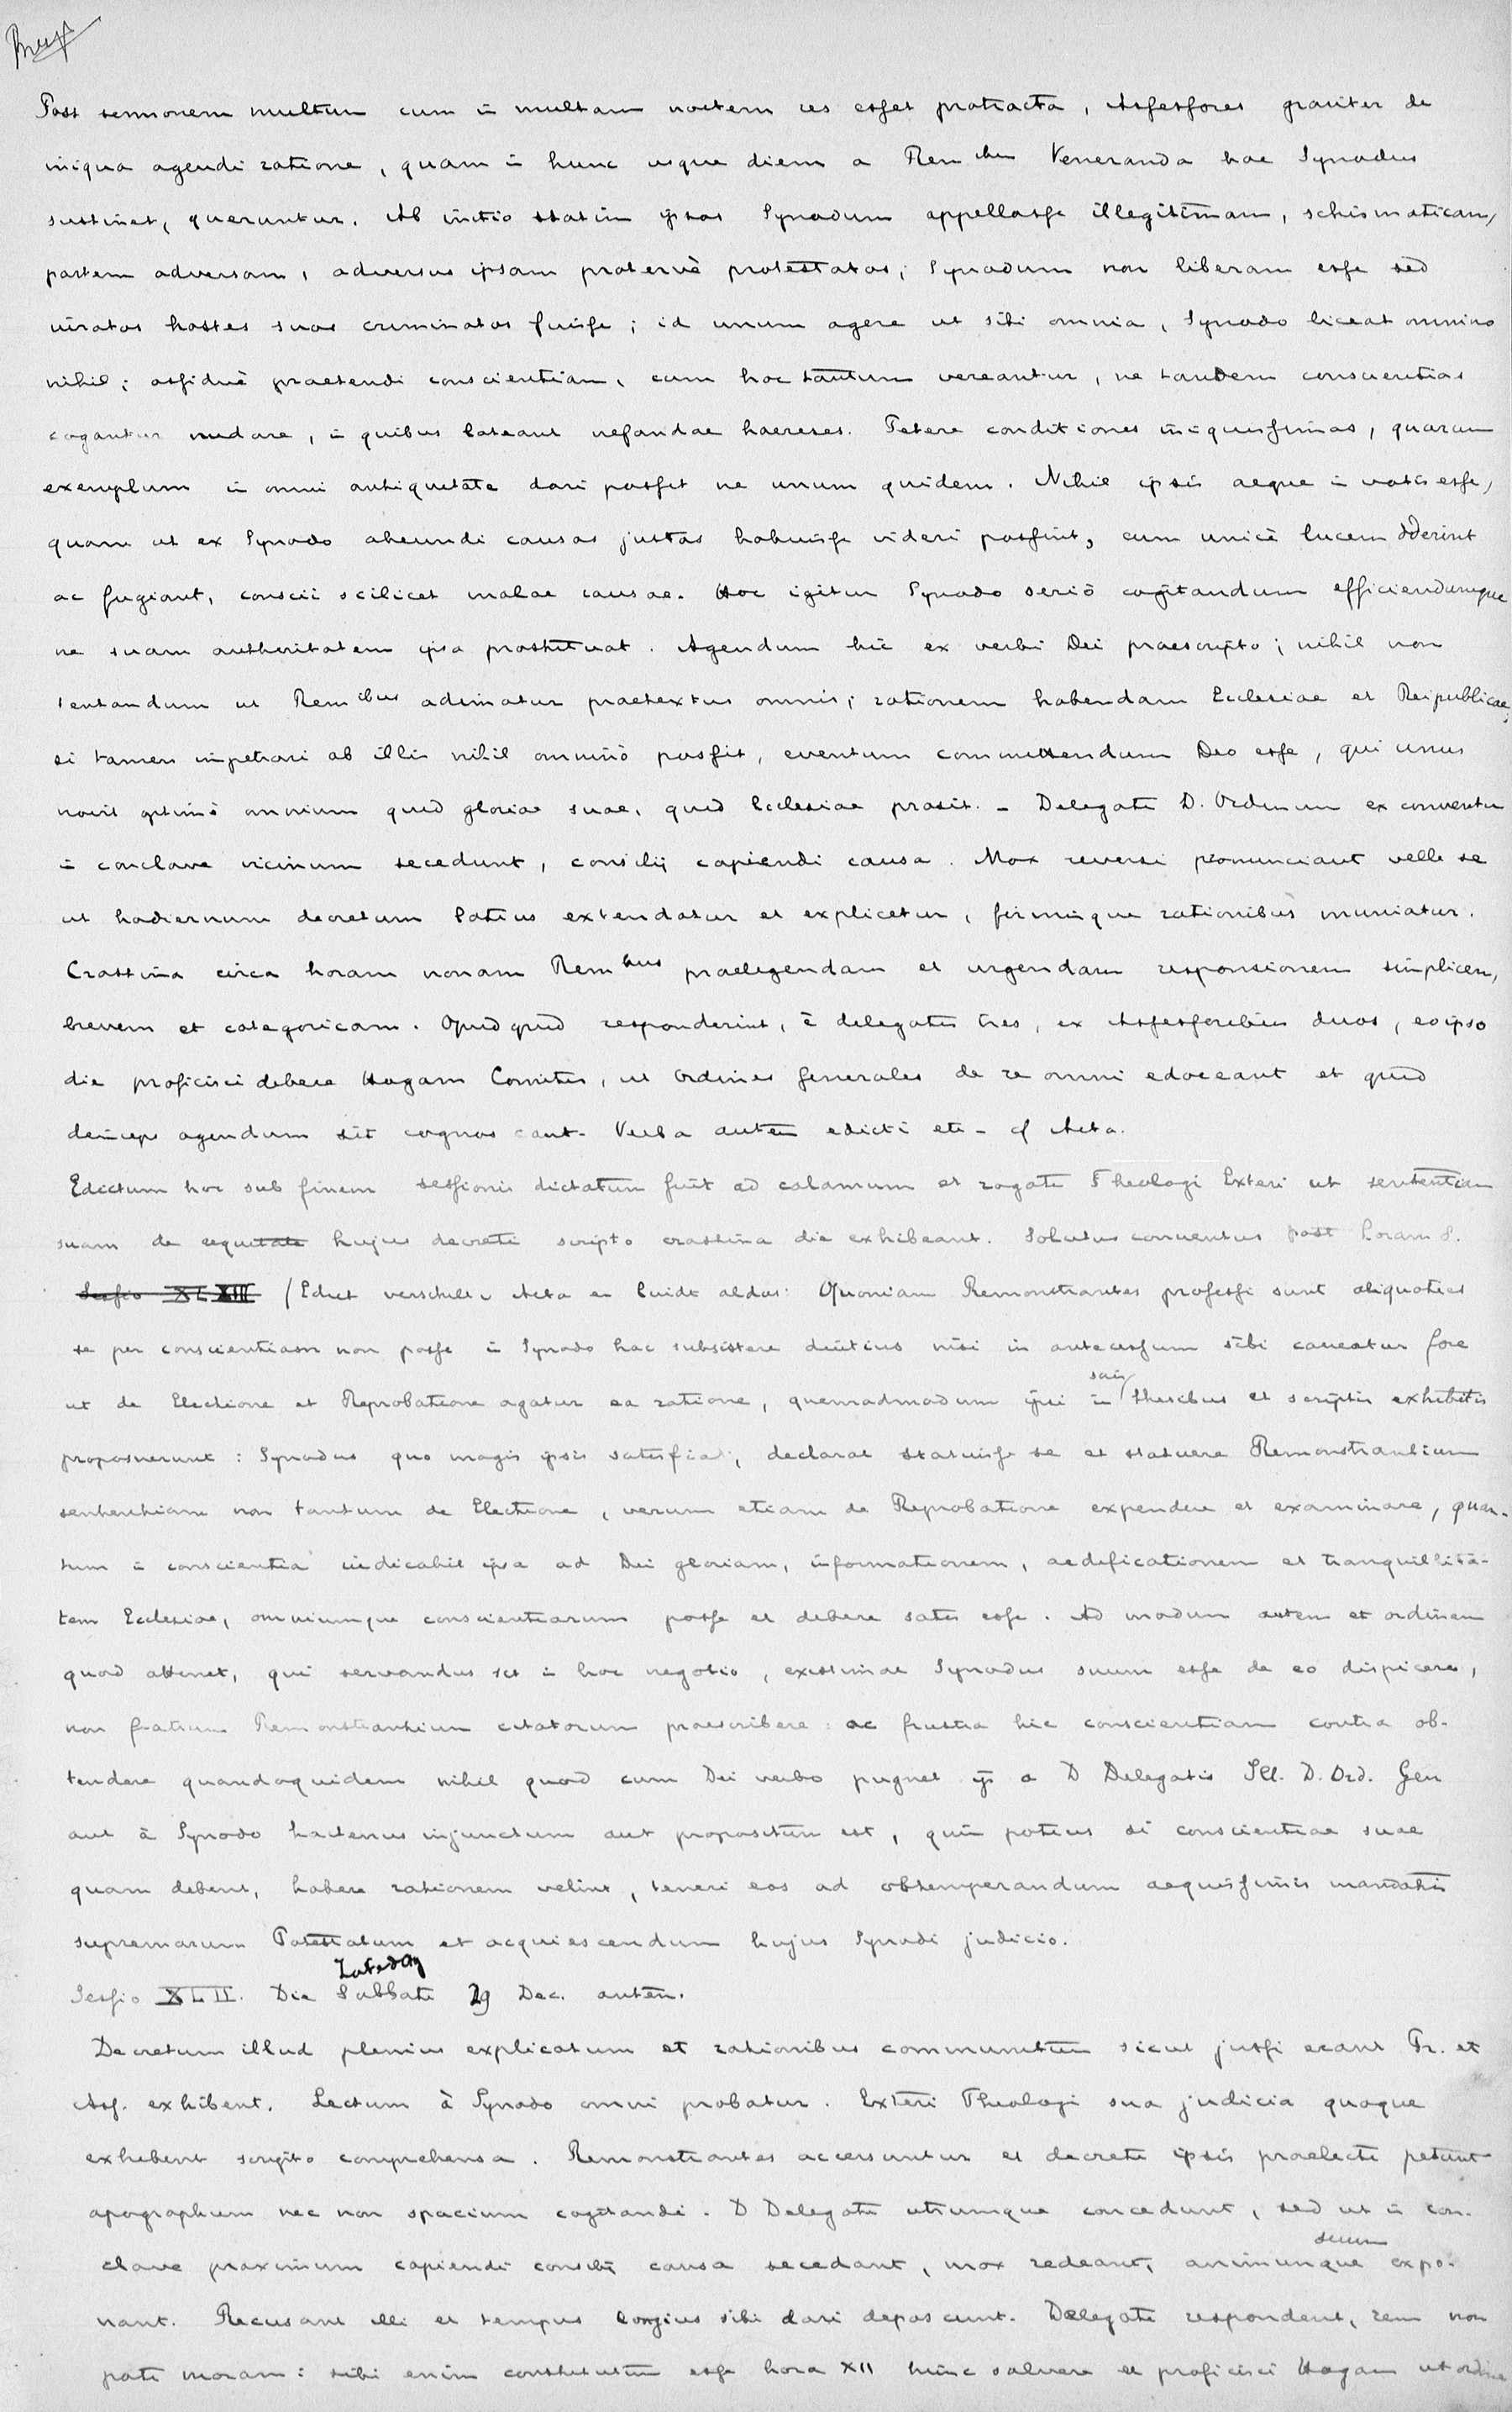 Post sermonem multum cum in multam noctem res esset protracta, Assessores graviter de
iniqua agendi ratione, quam in hunc usque diem a Rem ibus Veneranda hac Synodus
sustinet, queruntur. Ab initio statim ipsos Synodum appellasse illegitimam, schismaticam,
partem adversam, adversus ipsam protervè protestatos; Synodum non liberam esse sed
iuratos hostes suos criminatos fuisse; id unum agere ut sibi omnia, Synodo liceat omnino
nihil; assiduè praetendi conscientiam, cum hoc tantum vereantur, ne tandem conscientias
cogantur nudare, in quibus lateant nefandae haereses. Petere conditiones iniquissimas, quarum
exemplum in omni antiquitate dari possit ne unum quidem. Nihil ipsis aeque in votis esse,
quam ut ex Synodo abeundi causas justas habuisse videri possint, cum unicè lucem oderint
ac fugiant, conscii scilicet malae causae. Hoc igitur Synodo seriò cogitandum efficiendumque
ne suam authoritatem ipsa prostituat. Agendum hic ex verbi Dei praescripto; nihil non
tentandum ut Rem ibus adimatur praetextus omnis; rationem habendam Ecclesiae et Reipublicae;
si tamen impetrari ab illis nihil omninò possit, eventum committendum Deo esse, qui unus
novit optimè omnium quid gloriae suae, quid Ecclesiae prosit. - Delegati D. Ordinum ex conventu
in conclave vicinum secedunt, consilij capiendi causa. Mox reversi pronunciant velle se
ut hodiernum decretum latius extendatur et explicetur, firmisque rationibus muniatur.
Crastina circa horam nonam Rem bus praelegendam et urgendam responsionem simplicem,
brevem et categoricam. Quidquid responderint, è delegatis tres, ex Assessoribus duos, eo ipso
die proficisci debere Hagam Comitis, ut Ordines Generales de re omni edoceant et quid
deinceps agendum sit cognoscant. Verba autem edicti etc - cf Acta.
Edictum hoc sub finem sessionis dictatum fuit ad calamum et rogati Theologi Exteri ut sententiam
suam de aequitate hujus decreti scripto crastina die exhibeant. Solutus conventus post horam 8.
Sessio XLXIII / Edict verschilt v Acta en luidt aldus: Quoniam Remonstrantes professi sunt aliquoties
se per conscientiam non posse in Synodo hac subsistere diutius nisi in antecessum sibi caveatur fore
ut de Electione et Reprobatione agatur ea ratione, quemadmodum ipsi in suis thesibus et scriptis exhibitis
proposuerunt: Synodus quo magis ipsis satisfiat, declarat statuisse se et statuere Remonstrantium
sententiam non tantum de Electione, verum etiam de Reprobatione expendere et examinare, quan-
tum in conscientia iudicabit ipsa ad Dei gloriam, informationem, aedificationem et tranquillita-
tem Ecclesiae, omniumque conscientiarum posse et debere satis esse. Ad modum autem et ordinem
quod attinet, qui servandus sit in hoc negotio, existimat Synodus suum esse de eo dispicere,
non fratrum Remonstrantium citatorum praescribere: ac frustra hic conscientiam contra ob-
tendere quandoquidem nihil quod cum Dei verbo pugnet ijs a D Delegatis Ill. D. Ord. Gen
aut à Synodo hactenus injunctum aut propositum est, quin potius si conscientiae suae
quam debent, habere rationem velint, teneri eos ad obtemperandum aequissimis mandatis
supremarum Potestatum et acquiescendum hujus Synodi judicio.
Sessio XLII. Die Sabbati Zaterdag 29 Dec. antem.
Decretum illud plenius explicatum et rationibus communitum sicut jussi erant Pr. et
Ass. exhibent. Lectum à Synodo omni probatur. Exteri Theologi sua judicia quoque
exhibent scripto comprehensa. Remonstrantes accersuntur et decreti ipsis praelecti petunt
apographum nec non spacium cogitandi. D Delegati utrumque concedunt, sed ut in con-
clave proximum capiendi consilii causa secedant, mox redeant, animumque suum expo-
nant. Recusant illi et tempus longius sibi dari deposcunt. Delegati respondent, rem non
pati moram: sibi enim constitutum esse hora XII hinc solvere et proficisci Hagam ut ordine